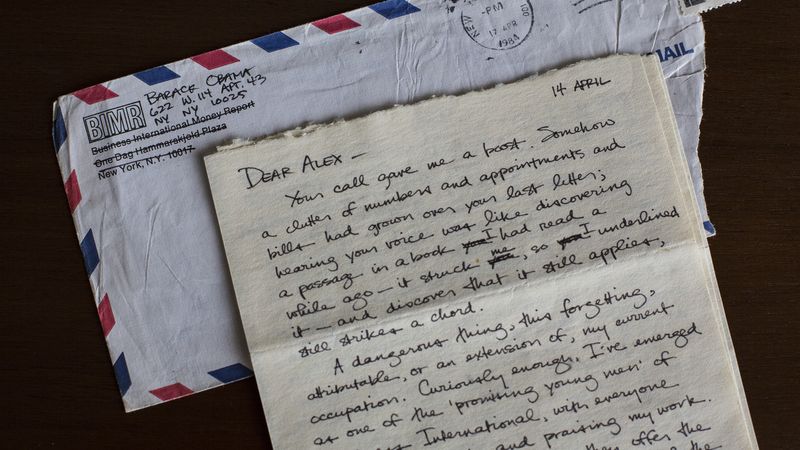 NEW
-PM
17 APR
1984
MAIL
BARACK OBAMA
622 W. 114 APT. 43
NY NY 10025
BIMR
Business International Money Report
One Dag Hammarskjold Plaza
New York, N.Y. 10017
14 APRIL
DEAR ALEX —
Your call gave me a boost. Somehow
a clutter of numbers and appointments and
bills had grown over your last letter;
hearing your voice was like discovering
a passage in a book I had read a
while ago — it struck me, so I underlined
it — and discover that it still applies,
still strikes a chord.
A dangerous thing, this forgetting,
attributable, or an extension of, my current
occupation. Curiously enough, I've emerged
as one of the 'promising young men' of
International, with everyone
and praising my work.
they offer the
the